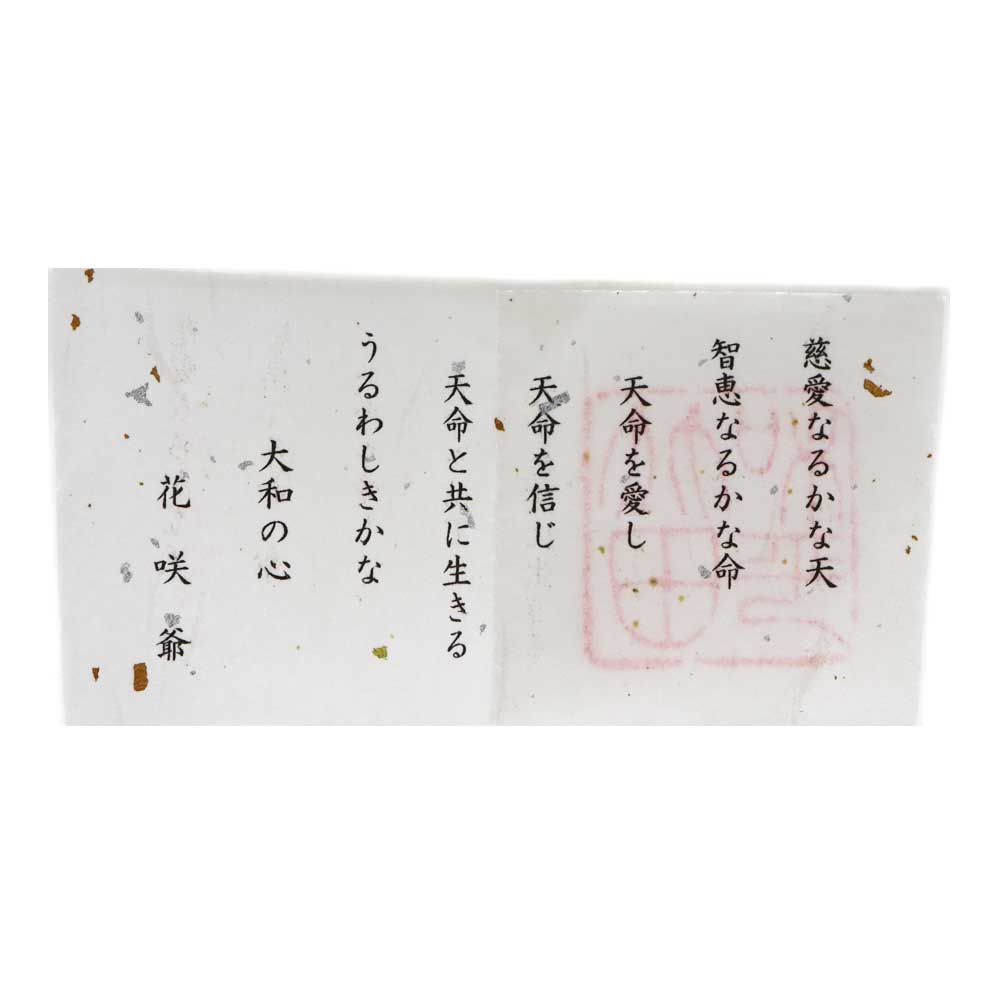 慈愛なるかな天
智恵なるかな命
天命を愛し
天命を信じ
天命と共に生きる
うるわしきかな
大和の心
花咲爺